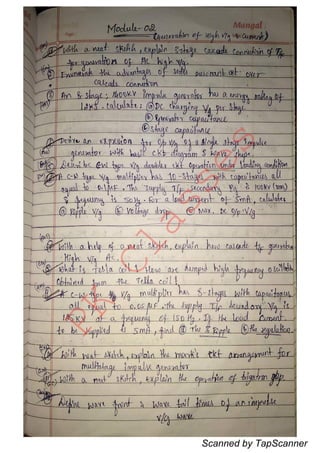 Mungal
Module-02
(generation of High V/g & current)
With a neat sketch, explain 3stage cascade connection of T/f
for generation of AC high v/g.
Enumerate the advantages of series resonant ckt over
cascade connection
An 8-stage; 1200KV impulse generator has a energy
calculate: (a) DC charging V/g per stage
(b) Generator capacitance
(c) stage capacitance
Derive an expression for O/p V/g of a single stage Impulse
generator with basic ckt diagram & wave shape.
Describe one type V/g doubler ckt operation under loading condition
A C-W type V/g multiplier has 10-stages with capacitances all
equal to The supply T/f secondary V/g is 100KV (rms)
& frequency is 50Hz. for a load current of 5mA, calculate
(a) Ripple V/g (b) Voltage drop (c) Max. DC O/p V/g
With a help of a neat sketch, explain how cascade T/f generates
High V/g AC.
What is Tesla coil? How are damped high frequency oscillations
Obtained from the Tesla coil?
A C-W type V/g multiplier has 8-stages with capacitances
all equal to The supply T/f secondary V/g is
at a frequency of 150Hz. If the load current
to be supplied is 5mA, find (a) The % Ripple (b) the regulation.
With neat sketch, explain the mark's ckt arrangement for
multistage impulse generator
With a neat sketch, explain the operation of trigatron gap.
Define wave front & wave tail times of an impulse
V/g wave
Scanned by TapScanner